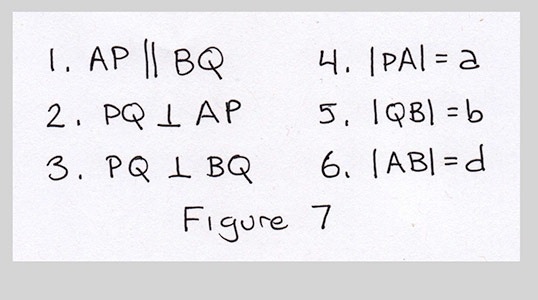 1. AP || BQ 4. |PA| = a
2. PQ ⊥ AP 5. |QB| = b
3. PQ ⊥ BQ 6. |AB| = d
Figure 7